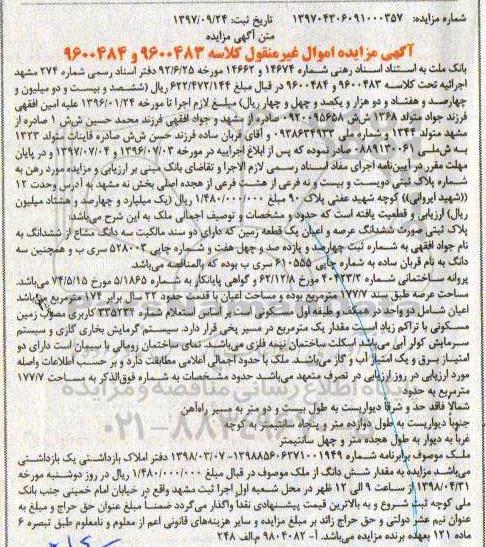 شماره مزایده: ۱۳۹۷۰۴۳۰۶۰۹۱۰۰۰۳۵۷ تاریخ ثبت: ۱۳۹۷/۰۹/۲۴
متن آگهی مزایده
آگهی مزایده اموال غیرمنقول کلاسه ۹۶۰۰۴۸۳ و ۹۶۰۰۴۸۴
بانک ملت به استناد اسناد رهنی شماره ۱۴۶۷۴ و ۱۴۶۶۲ مورخه ۹۲/۶/۲۵ دفتر اسناد رسمی شماره ۲۷۴ مشهد
اجرائیه تحت کلاسه ۹۶۰۰۴۸۳ و ۹۶۰۰۴۸۴ در قبال مبلغ ۶۲۲/۴۷۲/۱۴۴ ریال (ششصد و بیست و دو میلیون و
چهارصد و هفتاد و دو هزار و یکصد و چهل و چهار ریال) مبلغ لازم اجرا تا مورخه ۱۳۹۶/۰۱/۲۴ علیه امین افقهی
فرزند جواد متولد ۱۳۶۸ ش‌ش ۰۹۲۰۰۹۵۶۵۸ صادره از مشهد و جواد افقهی فرزند محمد حسین ش‌ش ۱ صادره از
مشهد متولد ۱۳۴۴ و شماره ملی ۰۹۳۸۶۳۴۹۳۳ و آقای قربان ساده فرزند حسن ش‌ش صادره قاینات متولد ۱۳۲۳
به ش‌ملی ۰۸۸۹۱۳۰۰۶۱ صادر نموده که پس از ابلاغ اجراییه در مورخه ۱۳۹۶/۰۷/۰۳ و ۱۳۹۷/۰۷/۰۴ و در پایان
مهلت مقرر در آیین‌نامه اجرای مفاد اسناد رسمی لازم الاجرا و تقاضای بانک مبنی بر ارزیابی و مزایده مورد رهن به
شماره پلاک ثبتی دویست و بیست و نه فرعی از هشت فرعی از هجده اصلی بخش نه مشهد به آدرس وحدت ۱۲
((شهید ایروانی)) کوچه شهید عفتی پلاک ۹۰ مبلغ ۱/۴۸۰/۰۰۰/۰۰۰ ریال (یک میلیارد و چهارصد و هشتاد میلیون
ریال) ارزیابی و قطعیت یافته است که حدود و مشخصات و توصیف اجمالی ملک به این شرح می‌باشد:
پلاک ثبتی صورت ششدانگ عرصه و اعیان یک قطعه زمین که دارای دو سند مالکیت سه دانگ مشاع از ششدانگ به
نام جواد افقهی به شماره ثبت چهارصد و یازده صد و چهل هفت و شماره چاپی ۵۲۸۰۰۳ سری ب و همچنین سه
دانگ به نام قربان ساده به شماره چاپی ۶۱۰۵۵۵ سری ب بوده که بالمناصفه می‌باشد.
پروانه ساختمانی شماره ۴۰۴۲۳/۲ مورخ ۶۲/۱۲/۸ و گواهی پایانکار به شماره ۵/۱۸۶۵ مورخ ۷۴/۵/۱۵ می‌باشد.
مساحت عرصه طبق سند ۱۷۷/۷ مترمربع بوده و مساحت اعیان با قدمت حدود ۲۲ سال برابر ۱۷۲ مترمربع می‌باشد
اعیان شامل دو واحد در همکف و طبقه اول مسکونی است بر اساس استعلام شماره ۳۳۵۲۳۴ کاربری مصوب زمین
مسکونی با تراکم زیاد است مقدار یک مترمربع در مسیر یخی قرار دارد. سیستم گرمایش بخاری گازی و سیستم
سرمایش کولر آبی می‌باشد اسکلت ساختمان نیمه فلزی می‌باشد. نمای ساختمان رومالی با سیمان است دارای دو
امتیاز برق و یک امتیاز آب و گاز می‌باشد. ملک با حدود اجمالی اعلامی مطابقت دارد و بر حسب اطلاعات واصله
مورد ارزیابی در روز ارزیابی در تصرف مشهد می‌باشد حدود مشخصات به شماره فوق‌الذکر به مساحت ۱۷۷/۷
مترمربع به حدود
شمالا فاقد حد و شرقا دیواریست به طول بیست و دو متر به مسیر راه‌آهن
جنوبا دیواریست به طول دوازده متر و پنجاه سانتیمتر به کوچه
غربا به دیوار به طول هجده متر و چهل سانتیمتر
ملک موصوف برابرنامه شماره ۱۳۹۸۸۵۶۰۶۲۷۱۰۰۱۹۴۹-۱۳۹۸/۰۳/۰۷ دفتر املاک بازداشتی یک بازداشتی
می‌باشد. مزایده به مقدار شش دانگ از ملک موصوف در قبال مبلغ ۱/۴۸۰/۰۰۰/۰۰۰ ریال در روز دوشنبه مورخه
۱۳۹۸/۰۴/۳۱ از ساعت ۹ الی ۱۲ ظهر در محل شعبه اول اجرا ثبت مشهد واقع در خیابان امام خمینی جنب بانک
ملی کوچه ثبت شروع و به بالاترین قیمت پیشنهادی نقدا واگذار می‌گردد ضمنا مبلغ عنوان حق حراج و مبلغ به
عنوان نیم عشر دولتی و حق حراج زائد بر مبلغ مزایده و سایر هزینه‌های قانونی اعم از معلوم و نامعلوم طبق تبصره ۶
ماده ۱۲۱ بعهده برنده مزایده می‌باشد. آ-۹۸۰۴۰۸۲ م.الف ۲۴۸